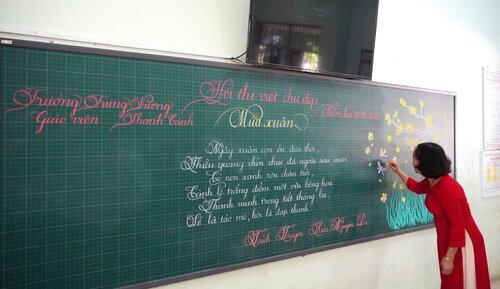 Hội thi viết chữ đẹp
Trường Trưng Vương
Năm học
Giáo viên
Mùa xuân
Ngày xuân con én đưa thoi,
Thiều quang chín chục đã ngoài sáu mươi
Cỏ non xanh rợn chân trời,
Cành lê trắng điểm một vài bông hoa.
Thanh minh trong tiết tháng ba,
Lễ là tảo mộ, hội là đạp thanh.
Trích Truyện Kiều Nguyễn Du